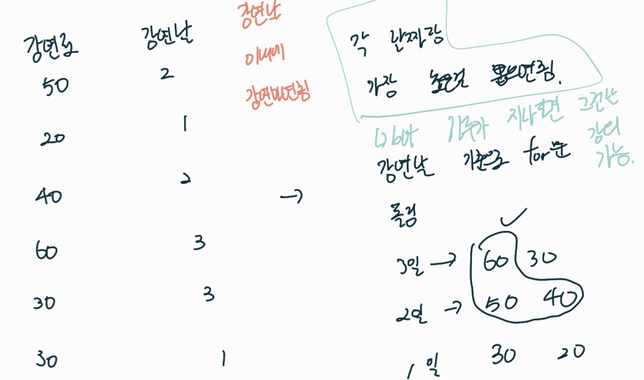 강연료 강연날
50 2
20 1
40 2
60 3
30 3
30 1
강연날
이내에
강연하면됨
각 날짜랑
가장 높은걸 뽑으면됨.
날짜가 지나면 그전날
강의
가능.
강연날 기준으로 for문
돌림
→
3일 → 60 30
2일 → 50 40
1일 30 20